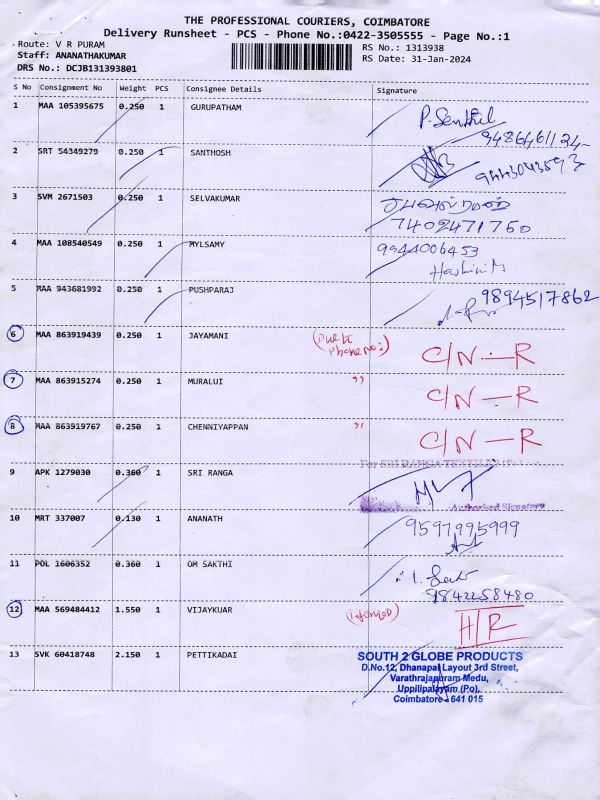 THE PROFESSIONAL COURIERS, COIMBATORE
Delivery Runsheet - PCS - Phone No.:0422-3505555 - Page No.:1
Route: V R PURAM
Staff: ANANATHAKUMAR
DRS No.: DCJB131393801
RS No.: 1313938
RS Date: 31-Jan-2024
S No Consignment No Weight PCS Consignee Details Signature
1 MAA 105395675 0.250 1 GURUPATHAM P. Senthil
9486461124
2 SRT 54349279 0.250 1 SANTHOSH
9443043593
3 SVM 2671503 0.250 1 SELVAKUMAR
7402471760
4 MAA 108540549 0.250 1 MYLSAMY 9944006453
Harhini M
5 MAA 943681992 0.250 1 PUSHPARAJ 9894517862
6 MAA 863919439 0.250 1 JAYAMANI (Due to Phone no:) C/N — R
7 MAA 863915274 0.250 1 MURALUI ,, C/N — R
8 MAA 863919767 0.250 1 CHENNIYAPPAN ,, C/N — R
For SRI RANGA
9 APK 1279030 0.360 1 SRI RANGA
Authorised Signatory
10 MRT 337007 0.130 1 ANANATH 9597995999
11 POL 1606352 0.360 1 OM SAKTHI
9842258480
12 MAA 569484412 1.550 1 VIJAYKUAR (informed) H/R
13 SVK 60418748 2.150 1 PETTIKADAI SOUTH 2 GLOBE PRODUCTS
D.No.12, Dhanapal Layout 3rd Street,
Varathrajapuram Medu,
Uppilipalayam (Po),
Coimbatore - 641 015